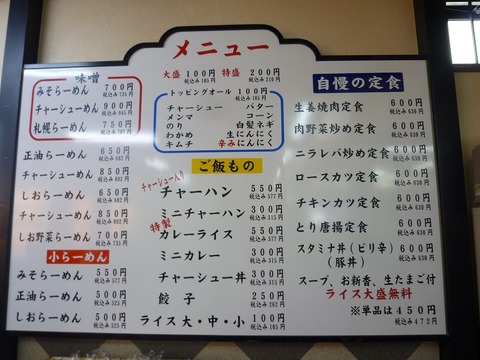 メニュー
大盛 100円 特盛 200円
税込み105円 税込み210円
味噌
みそらーめん 700円
税込み735円
チャーシューめん 900円
税込み945円
札幌らーめん 750円
税込み787円
正油らーめん 650円
税込み682円
チャーシューめん 850円
税込み892円
しおらーめん 650円
税込み682円
チャーシューめん 850円
税込み892円
しお野菜らーめん 700円
税込み735円
小らーめん
みそらーめん 550円
税込み577円
正油らーめん 500円
税込み525円
しおらーめん 500円
税込み525円
トッピングオール 100円
税込み105円
チャーシュー バター
メンマ コーン
のり 白髪ネギ
わかめ 生にんにく
キムチ 辛みにんにく
ご飯もの
チャーシュー入り
チャーハン 550円
税込み577円
ミニチャーハン 300円
税込み315円
特製
カレーライス 550円
税込み577円
ミニカレー 300円
税込み315円
チャーシュー丼 300円
税込み315円
餃子 250円
税込み262円
ライス 大・中・小 100円
税込み105円
自慢の定食
生姜焼肉定食 600円
税込み630円
肉野菜炒め定食 600円
税込み630円
ニラレバ炒め定食 600円
税込み630円
ロースカツ定食 600円
税込み630円
チキンカツ定食 600円
税込み630円
とり唐揚定食 600円
税込み630円
スタミナ丼(ピリ辛) 600円
税込み630円
(豚丼)
スープ、お新香、生たまご付
ライス大盛無料
※単品は450円
税込み472円